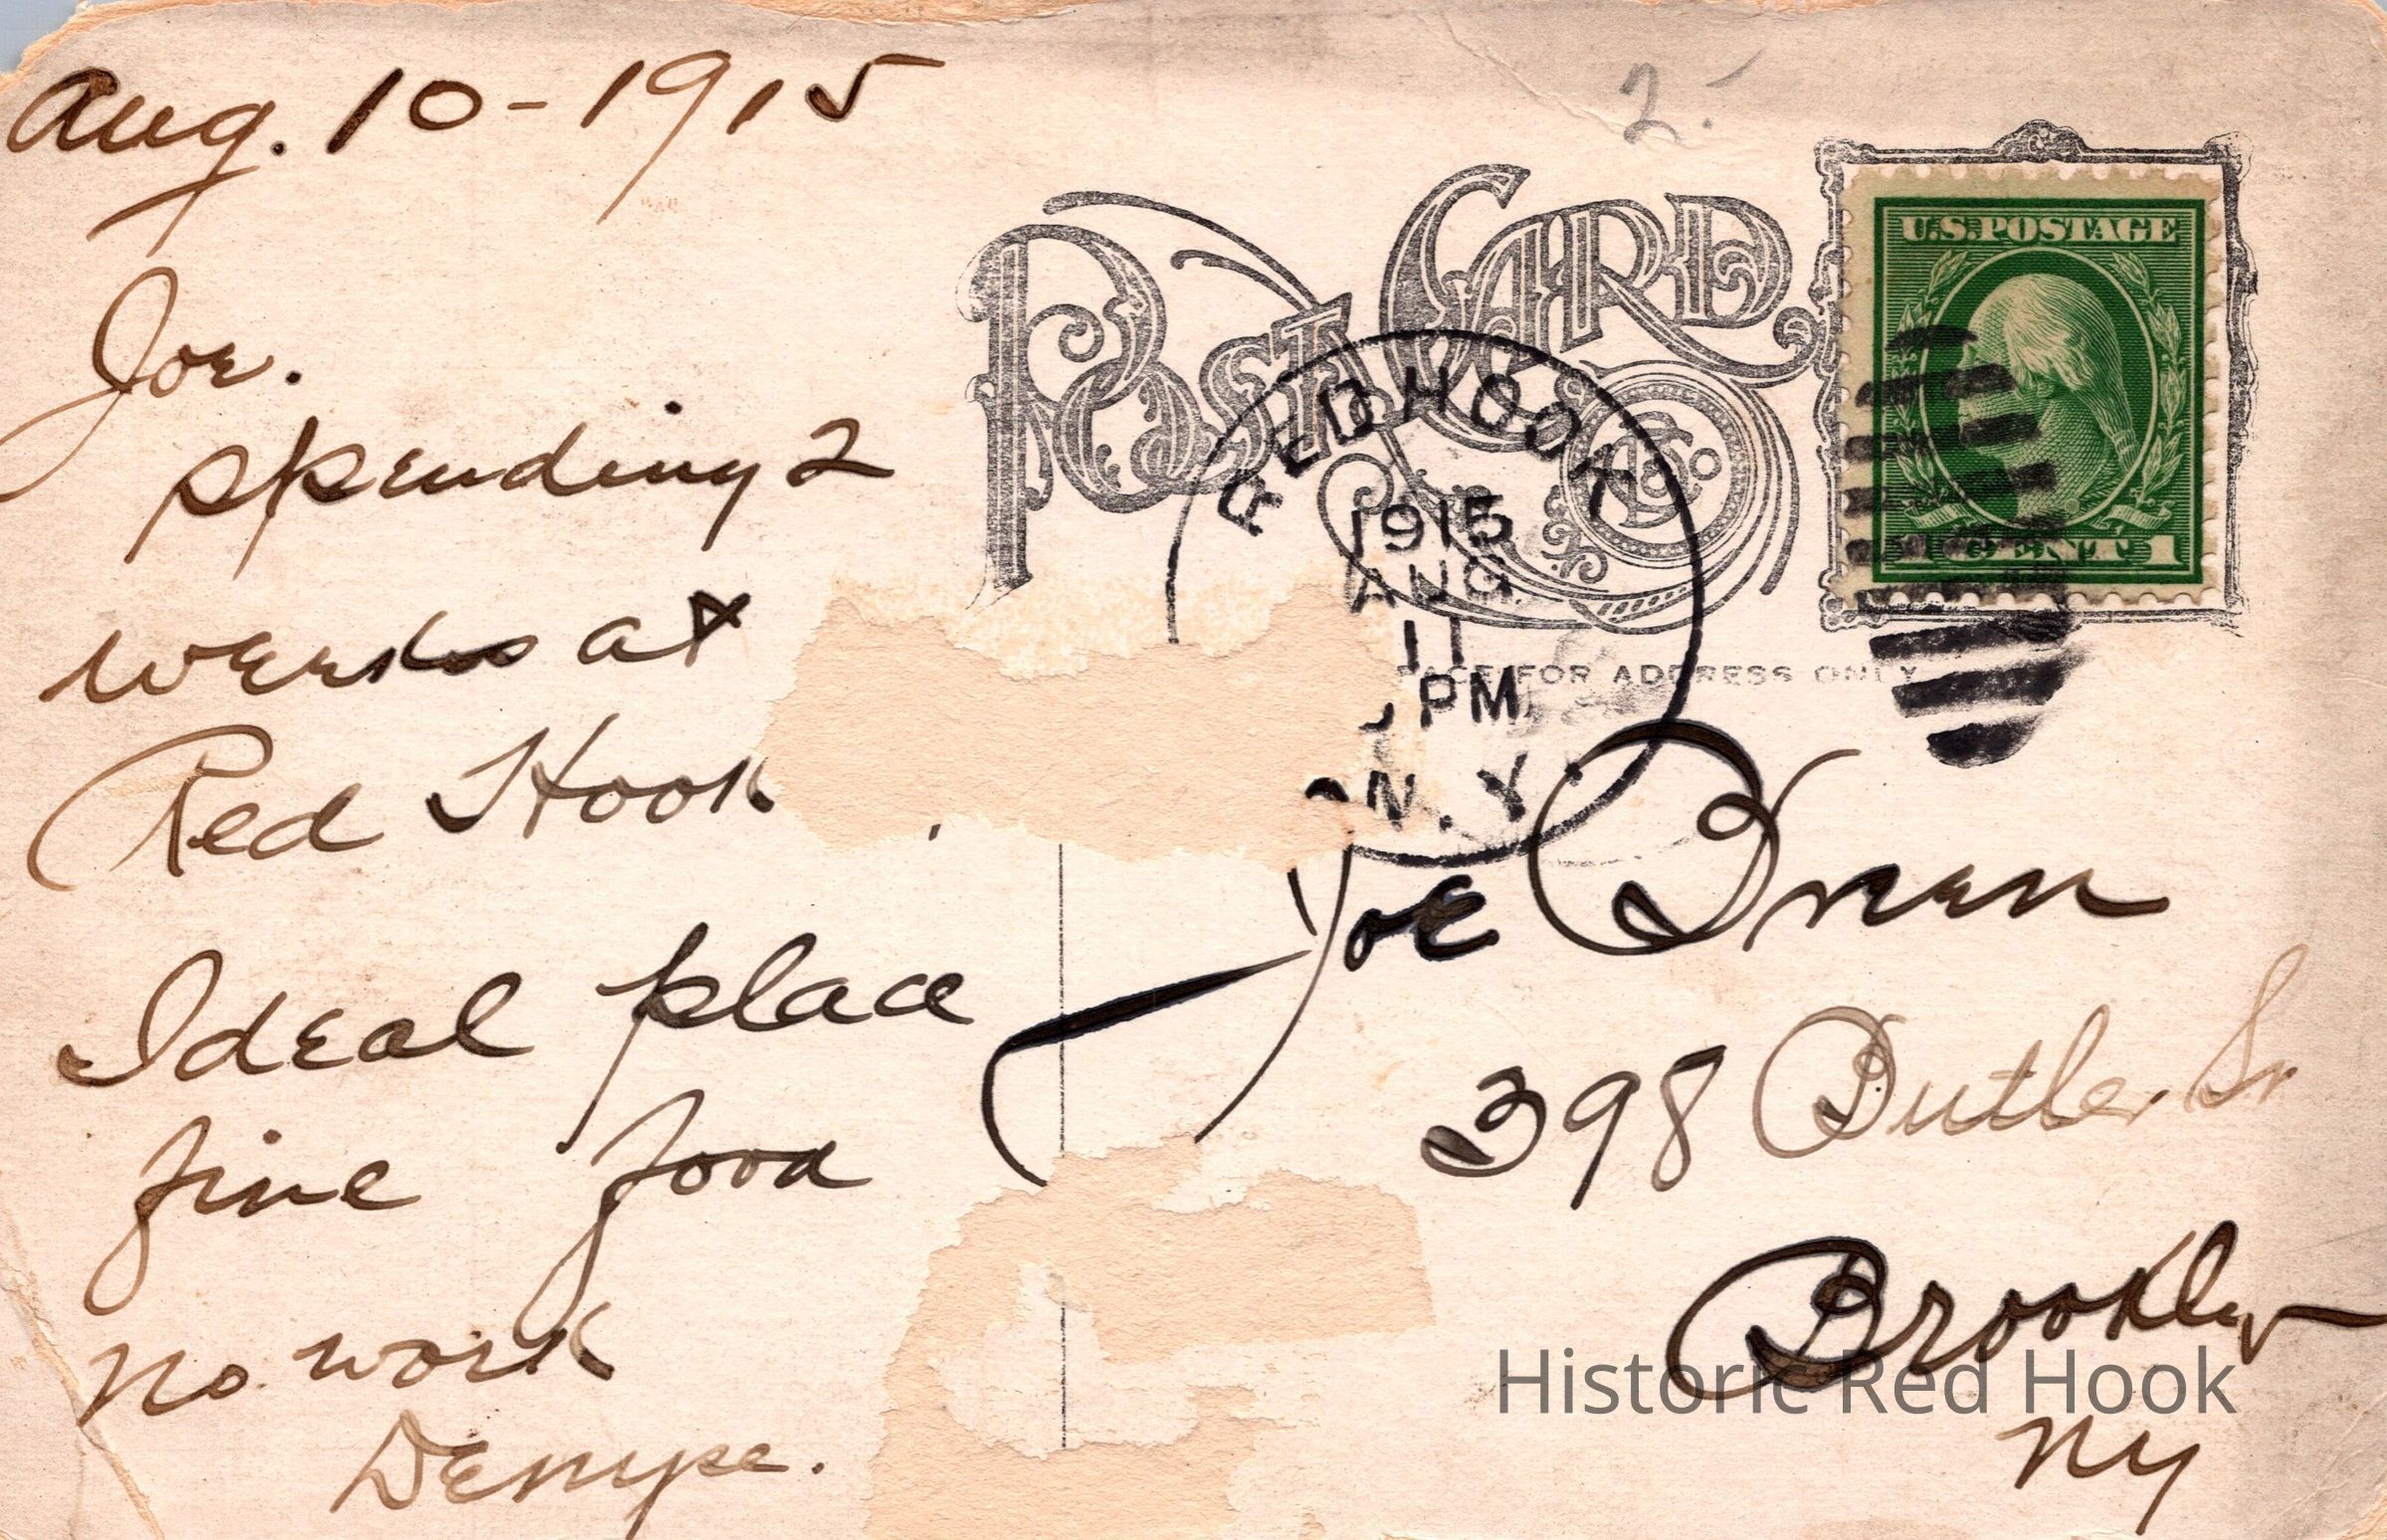 Aug. 10 - 1915
Joe.
Spending 2
weeks at
Red Hook
Ideal place
fine food
no work
2.-
POST CARD
U.S. POSTAGE
1 CENT 1
RED HOOK
1915
AUG
11
PM
N.Y.
FOR ADDRESS ONLY
Joe
398 Butler St
Brooklyn
NY
Historic Red Hook